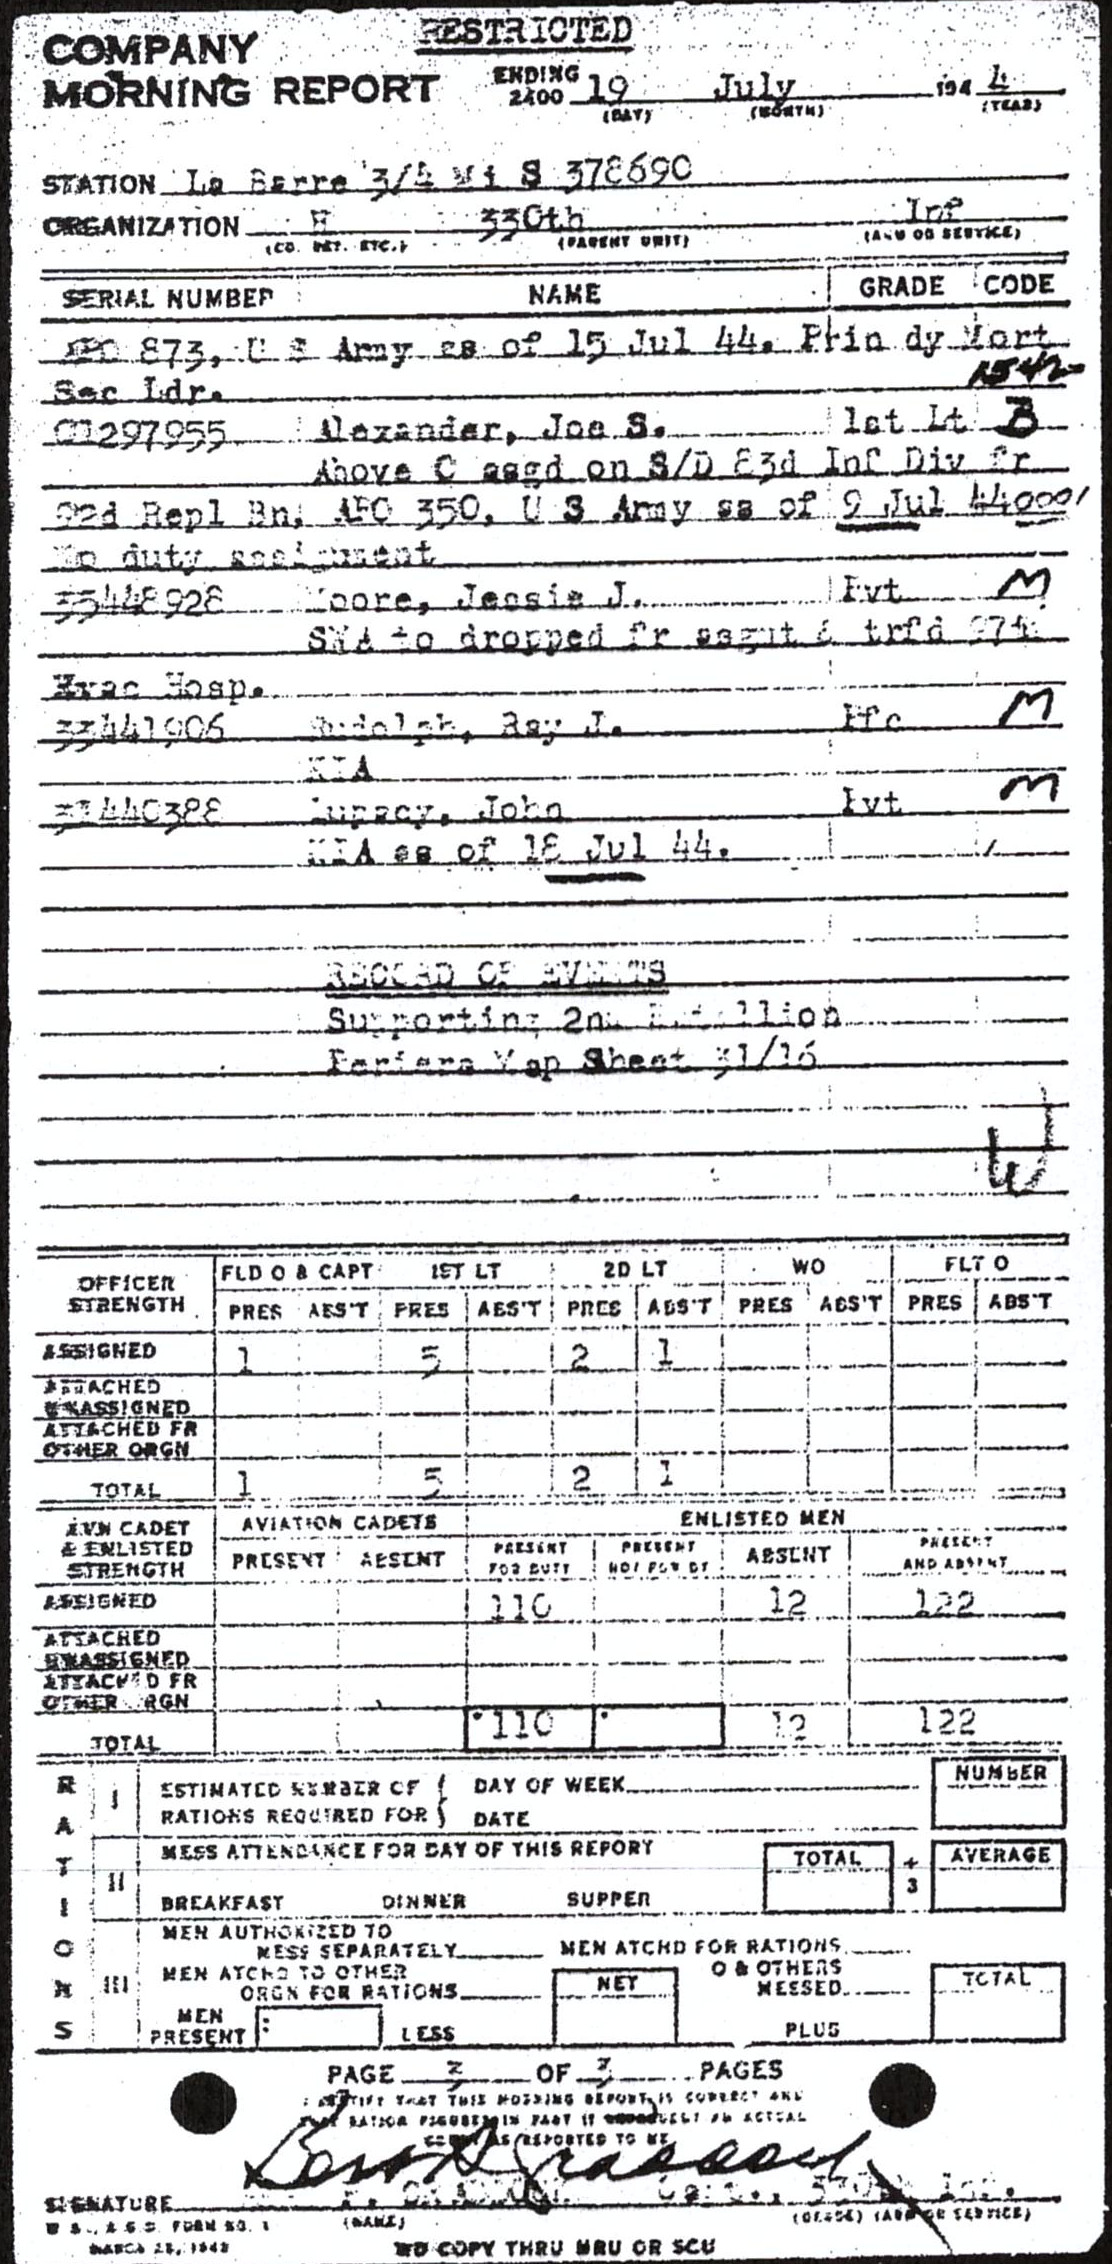 RESTRICTED
COMPANY
MORNING REPORT
ENDING 2400 19 July 1944
(DAY) (MONTH) (YEAR)
STATION La Barre 3/4 Mi S 378690
ORGANIZATION H 330th Inf
(CO. DET. ETC.) (PARENT UNIT) (ARM OR SERVICE)
SERIAL NUMBER NAME GRADE CODE
APO 873, U S Army as of 15 Jul 44. Prin dy Mort
Sec Ldr. 1542
O1297955 Alexander, Joe S. 1st Lt B
Above C asgd on S/D 83d Inf Div fr
92d Repl Bn, APO 350, U S Army as of 9 Jul 44 0001
No duty assignment
35448928 Moore, Jessie J. Pvt M
SWA to dropped fr asgnt & trfd 97th
Evac Hosp.
33441906 Rudolph, Ray J. Pfc M
KIA
Lupacy, John Pvt M
KIA as of 18 Jul 44.
RECORD OF EVENTS
Supporting 2nd Battallion
Periers Map Sheet 31/16
W
OFFICER STRENGTH FLD O & CAPT 1ST LT 2D LT WO FLT O
PRES ABS'T PRES ABS'T PRES ABS'T PRES ABS'T PRES ABS'T
ASSIGNED 1 5 2 1
ATTACHED UNASSIGNED
ATTACHED FR OTHER ORGN
TOTAL 1 5 2 1
AVN CADET & ENLISTED STRENGTH AVIATION CADETS ENLISTED MEN
PRESENT ABSENT PRESENT FOR DUTY PRESENT NOT FOR DY ABSENT PRESENT AND ABSENT
ASSIGNED 110 12 122
ATTACHED UNASSIGNED
ATTACHED FR OTHER ORGN
TOTAL 110 12 122
RATIONS
I ESTIMATED NUMBER OF DAY OF WEEK NUMBER
RATIONS REQUIRED FOR DATE
II MESS ATTENDANCE FOR DAY OF THIS REPORT TOTAL ÷ 3 AVERAGE
BREAKFAST DINNER SUPPER
III MEN AUTHORIZED TO
MESS SEPARATELY MEN ATCHD FOR RATIONS
MEN ATCHD TO OTHER ORGN FOR RATIONS NET O & OTHERS MESSED TOTAL
MEN PRESENT LESS PLUS
PAGE 3 OF 3 PAGES
I CERTIFY THAT THIS MORNING REPORT IS CORRECT AND
SIGNATURE Capt., 330th Inf.
(NAME) (GRADE) (ARM OR SERVICE)
W D., A.G.O. FORM NO. 1
MARCH 25, 1943
WD COPY THRU MRU OR SCU